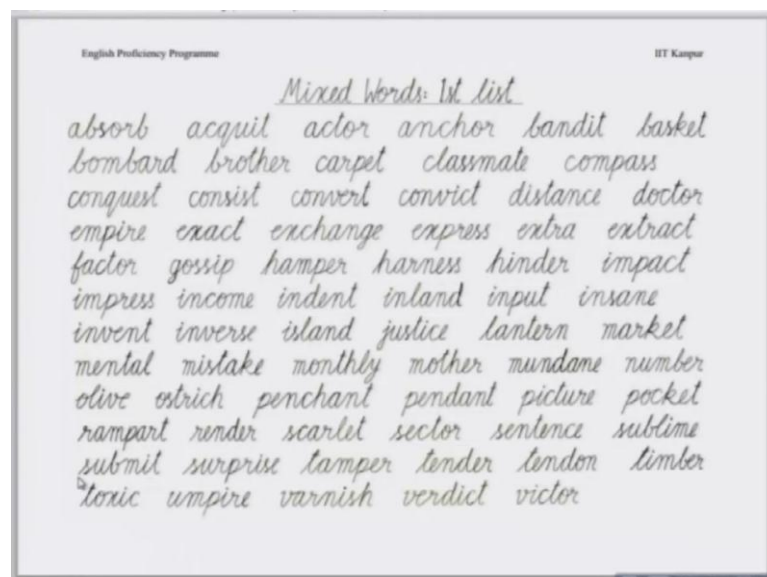 English Proficiency Programme IIT Kanpur
Mixed Words: 1st list
absorb acquit actor anchor bandit basket
bombard brother carpet classmate compass
conquest consist convert convict distance doctor
empire exact exchange express extra extract
factor gossip hamper harness hinder impact
impress income indent inland input insane
invent inverse island justice lantern market
mental mistake monthly mother mundane number
olive ostrich penchant pendant picture pocket
rampart render scarlet sector sentence sublime
submit surprise tamper tender tendon timber
toxic umpire varnish verdict victor